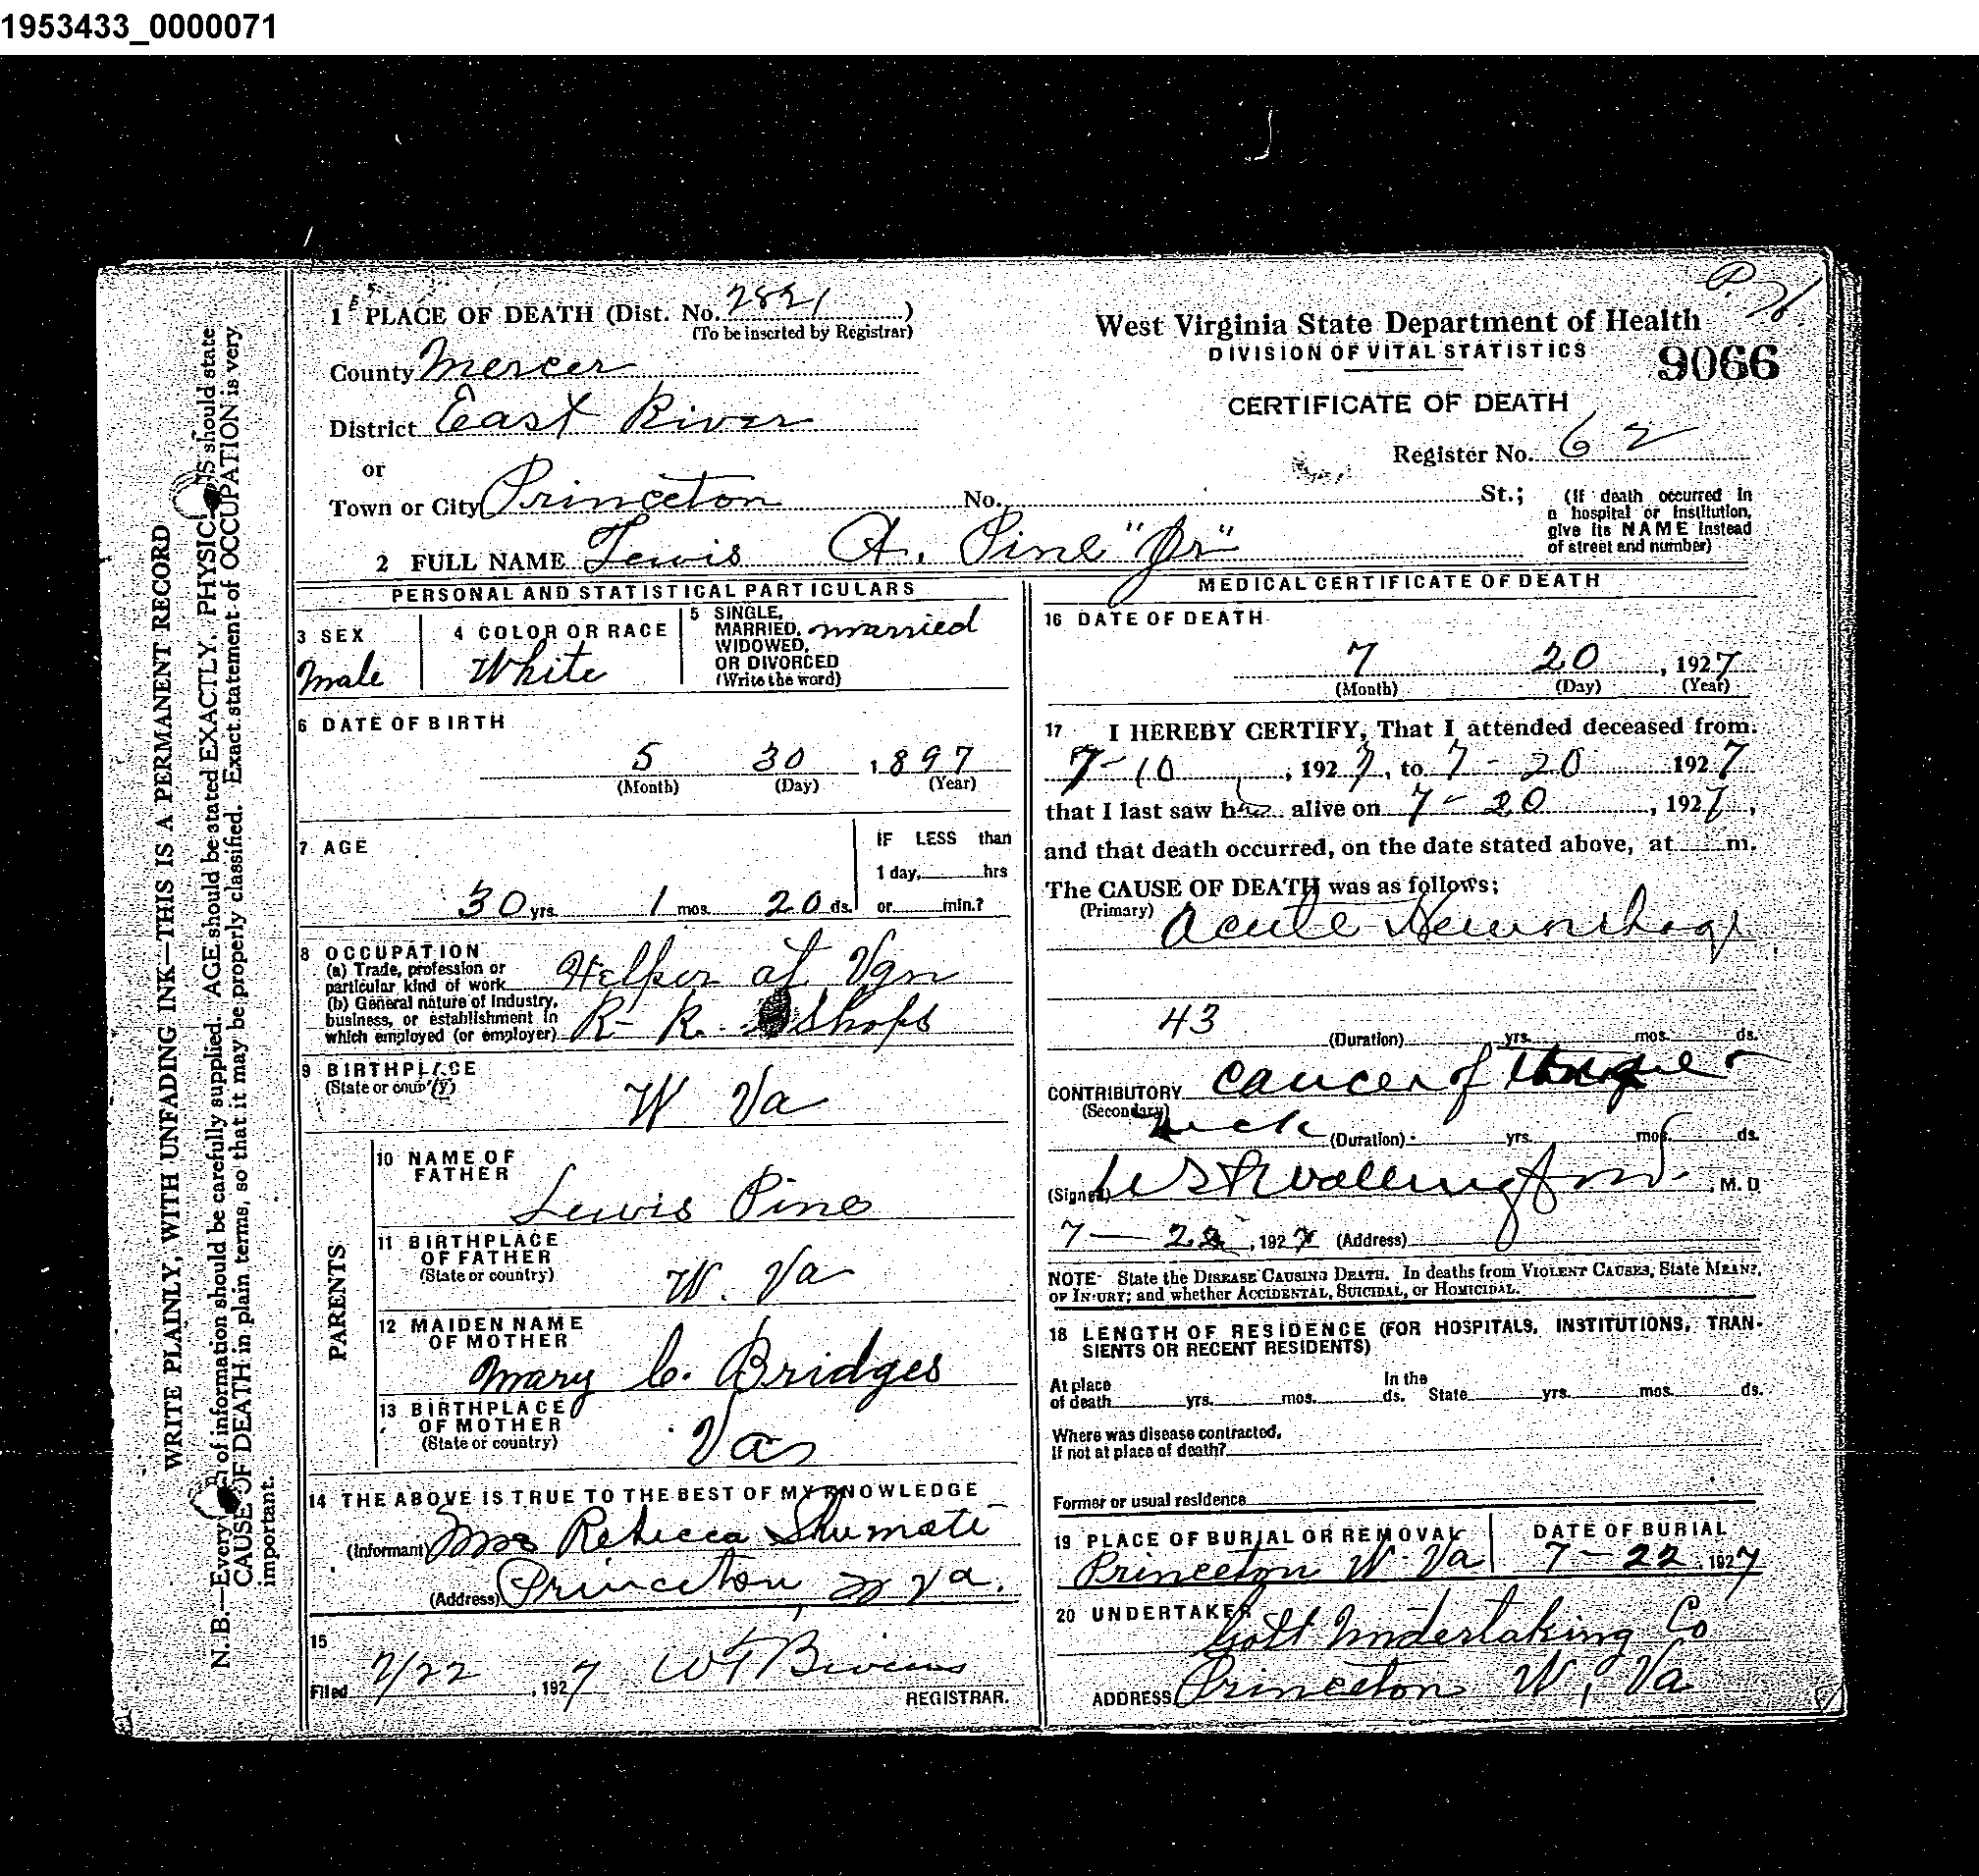 1953433_0000071
P.
1 PLACE OF DEATH (Dist. No. 2821)
(To be inserted by Registrar)
County Mercer
District East River
or
Town or City Princeton No. St.;
(If death occurred in a hospital or institution, give its NAME instead of street and number)
2 FULL NAME Lewis A. Pine "Jr"
West Virginia State Department of Health
DIVISION OF VITAL STATISTICS
9066
CERTIFICATE OF DEATH
Register No. 62
PERSONAL AND STATISTICAL PARTICULARS
3 SEX
Male
4 COLOR OR RACE
White
5 SINGLE,
MARRIED,
WIDOWED,
OR DIVORCED
(Write the word)
married
6 DATE OF BIRTH
5 30 1897
(Month) (Day) (Year)
7 AGE
30 yrs. 1 mos. 20 ds.
IF LESS than
1 day, hrs
or min.?
8 OCCUPATION
(a) Trade, profession or
particular kind of work Helper at Vgn
(b) General nature of Industry,
business, or establishment in
which employed (or employer) R- R. Shops
9 BIRTHPLACE
(State or country)
W Va
PARENTS
10 NAME OF
FATHER
Lewis Pine
11 BIRTHPLACE
OF FATHER
(State or country)
W. Va
12 MAIDEN NAME
OF MOTHER
Mary C. Bridges
13 BIRTHPLACE
OF MOTHER
(State or country)
Va
14 THE ABOVE IS TRUE TO THE BEST OF MY KNOWLEDGE
(Informant) Mrs Rebecca Shumate
(Address) Princeton, W Va.
15
Filed 7/22, 1927 W Bivens
REGISTRAR.
MEDICAL CERTIFICATE OF DEATH
16 DATE OF DEATH
7 20, 1927
(Month) (Day) (Year)
17 I HEREBY CERTIFY, That I attended deceased from
7-10, 1927, to 7-20 1927
that I last saw h alive on 7-20, 1927,
and that death occurred, on the date stated above, at m.
The CAUSE OF DEATH was as follows:
(Primary) Acute Hemorrhage
43
(Duration) yrs. mos. ds.
CONTRIBUTORY Cancer of
(Secondary)
neck (Duration) yrs. mos. ds.
(Signed) , M. D
7- 22, 1927 (Address)
NOTE- State the DISEASE CAUSING DEATH. In deaths from VIOLENT CAUSES, State MEANS
OF INJURY; and whether ACCIDENTAL, SUICIDAL, or HOMICIDAL.
18 LENGTH OF RESIDENCE (FOR HOSPITALS, INSTITUTIONS, TRAN-
SIENTS OR RECENT RESIDENTS)
At place
of death yrs. mos. ds.
In the
State yrs. mos. ds.
Where was disease contracted,
If not at place of death?
Former or usual residence
19 PLACE OF BURIAL OR REMOVAL
Princeton W. Va
DATE OF BURIAL
7-22, 1927
20 UNDERTAKER
Gott Undertaking Co
ADDRESS Princeton W, Va
WRITE PLAINLY, WITH UNFADING INK—THIS IS A PERMANENT RECORD
N.B.—Every of information should be carefully supplied. AGE should be stated EXACTLY. PHYSIC should state
CAUSE OF DEATH in plain terms, so that it may be properly classified. Exact statement of OCCUPATION is very
important.